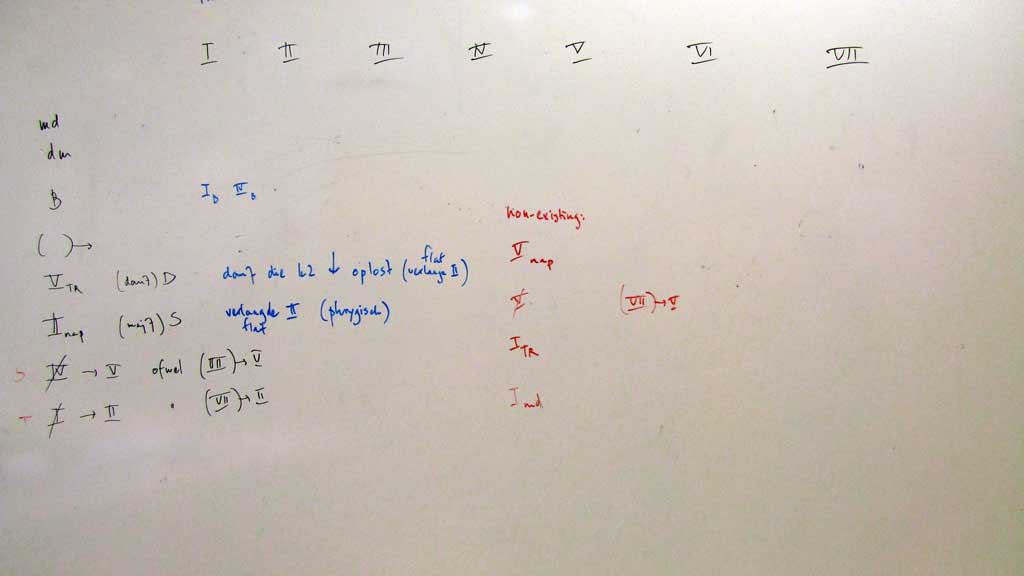 I II III IV V VI VII
md
dm
B I_B IV_B
( )→
V_TR (dom7) D dom7 die k2 ↓ oplost (verlaagde II) flat
II_nap (maj7) S verlaagde II (phrygisch)
flat
S IV → V ofwel (VII)→V
T I → II " (VII)→II
non-existing:
V_nap
V (VII)→V
I_TR
I_md